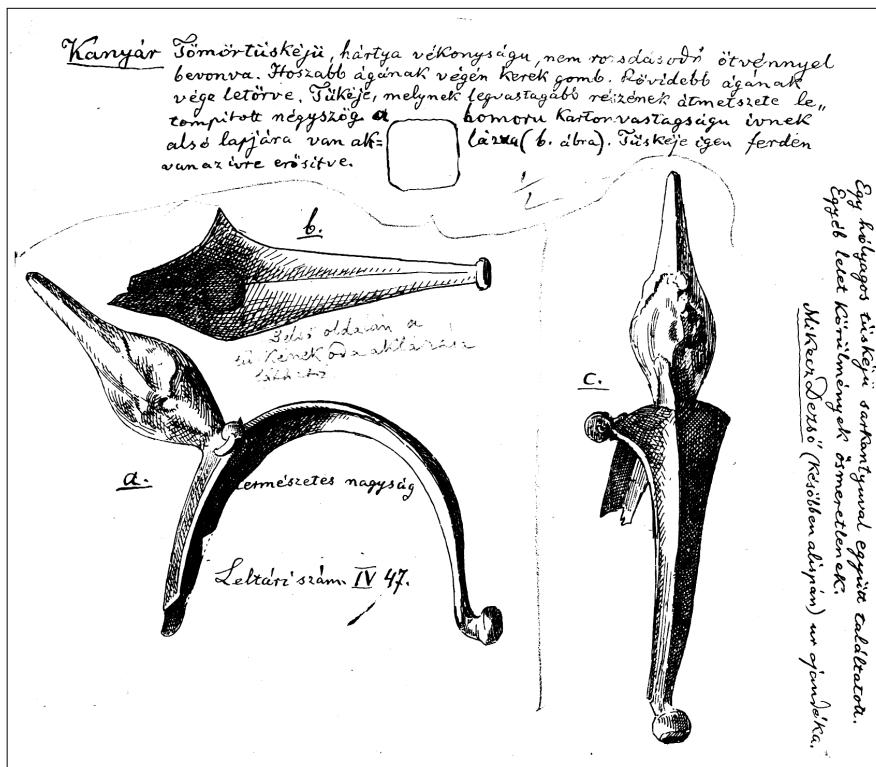 Kanyár Tömörtüskéjű, hártya vékonyságu, nem rozsdásodó ötvénnyel
bevonva. Hoszabb ágának végén kerek gomb. Rövidebb ágának
vége letörve. Tükéje, melynek legvastagabb részének átmetszete le„
tompitott négyszög a homoru karton vastagságu ivnek
alsó lapjára van al=
van az ivre erősitve.
(b. ábra). Tüskéje igen ferdén
1/1
b.
Belső oldalán a
látható
a.
természetes nagyság
Leltári szám. IV 47.
c.
Egy hólyagos tüskéjű sarkantyuval együtt találtatott.
Egyéb lelet körülmények ösmeretlenek.
Mikecz Dezső (későbben alispán) ur ajándéka.